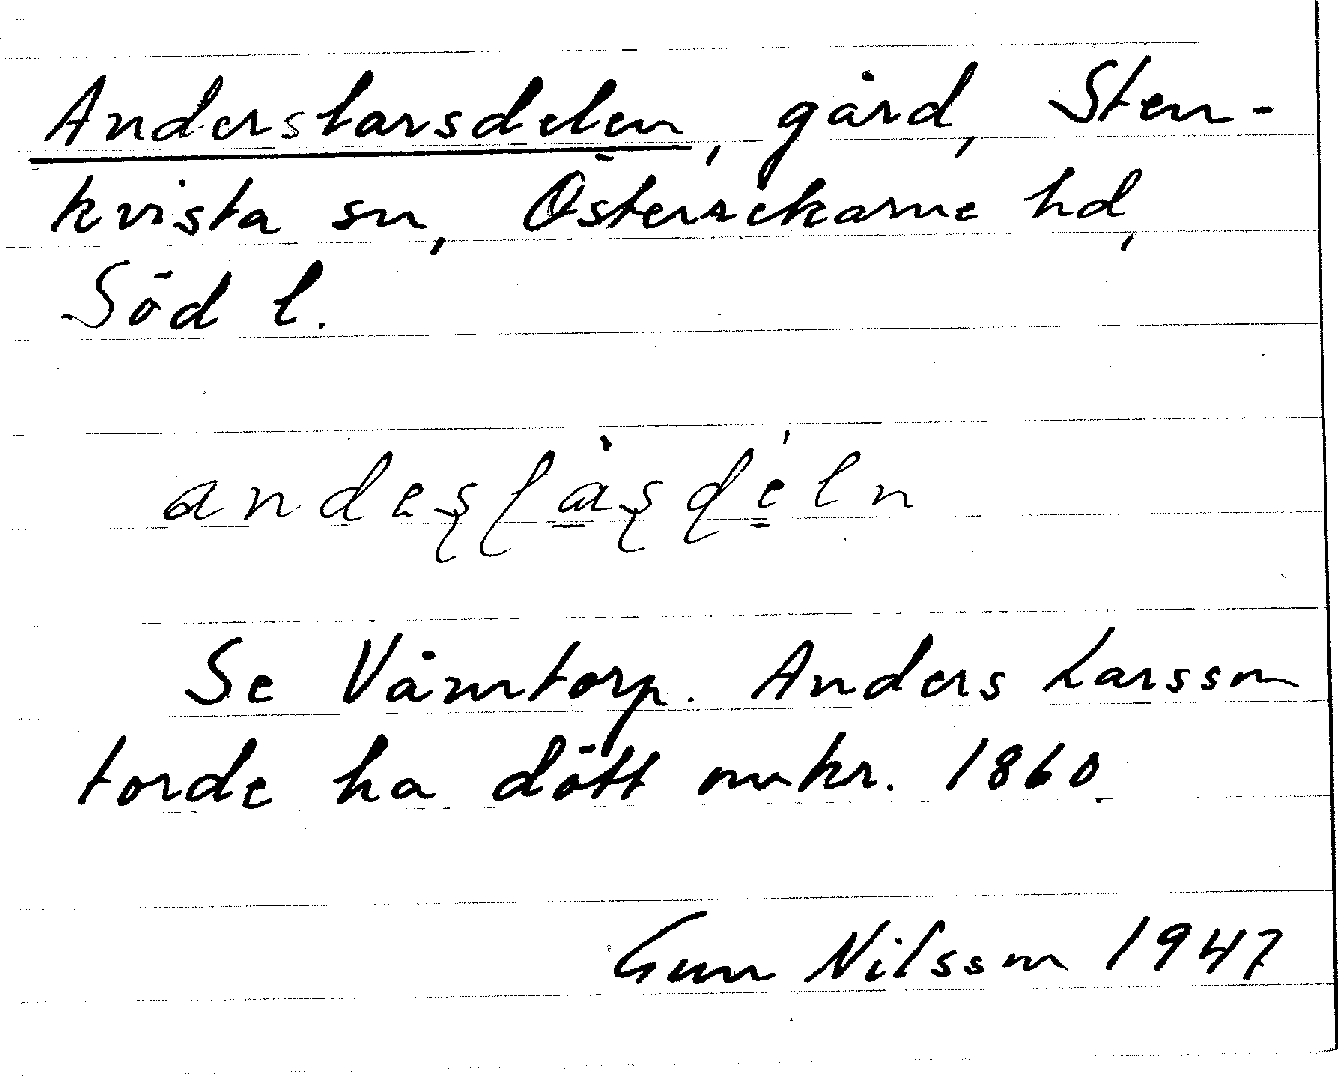 Anderslarsdelen, gård, Sten-
kvista sn, Österrekarne hd,
Söd l.
andeşlàşdéln
Se Våmtorp. Anders Larsson
torde ha dött omkr. 1860.
Gun Nilsson 1947